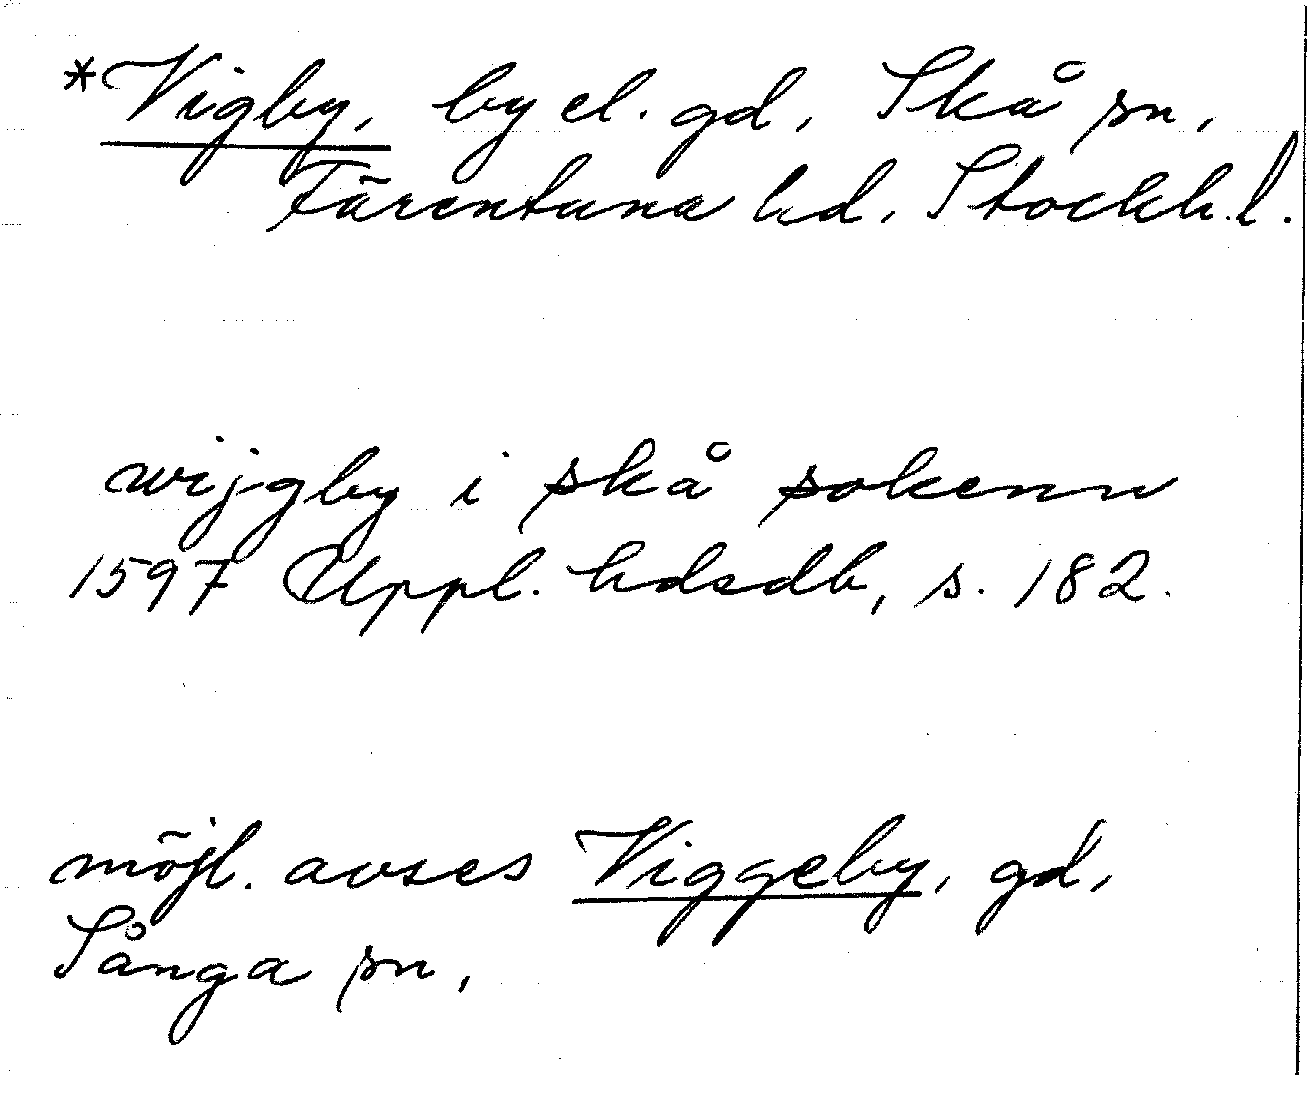 *Vigby, by el. gd, Skå sn,
Färentuna hd, Stockh. l.
wijgby i skå sokenn
1597 Uppl. hdsdb, s. 182.
möjl. avses Viggeby, gd,
Sånga sn,